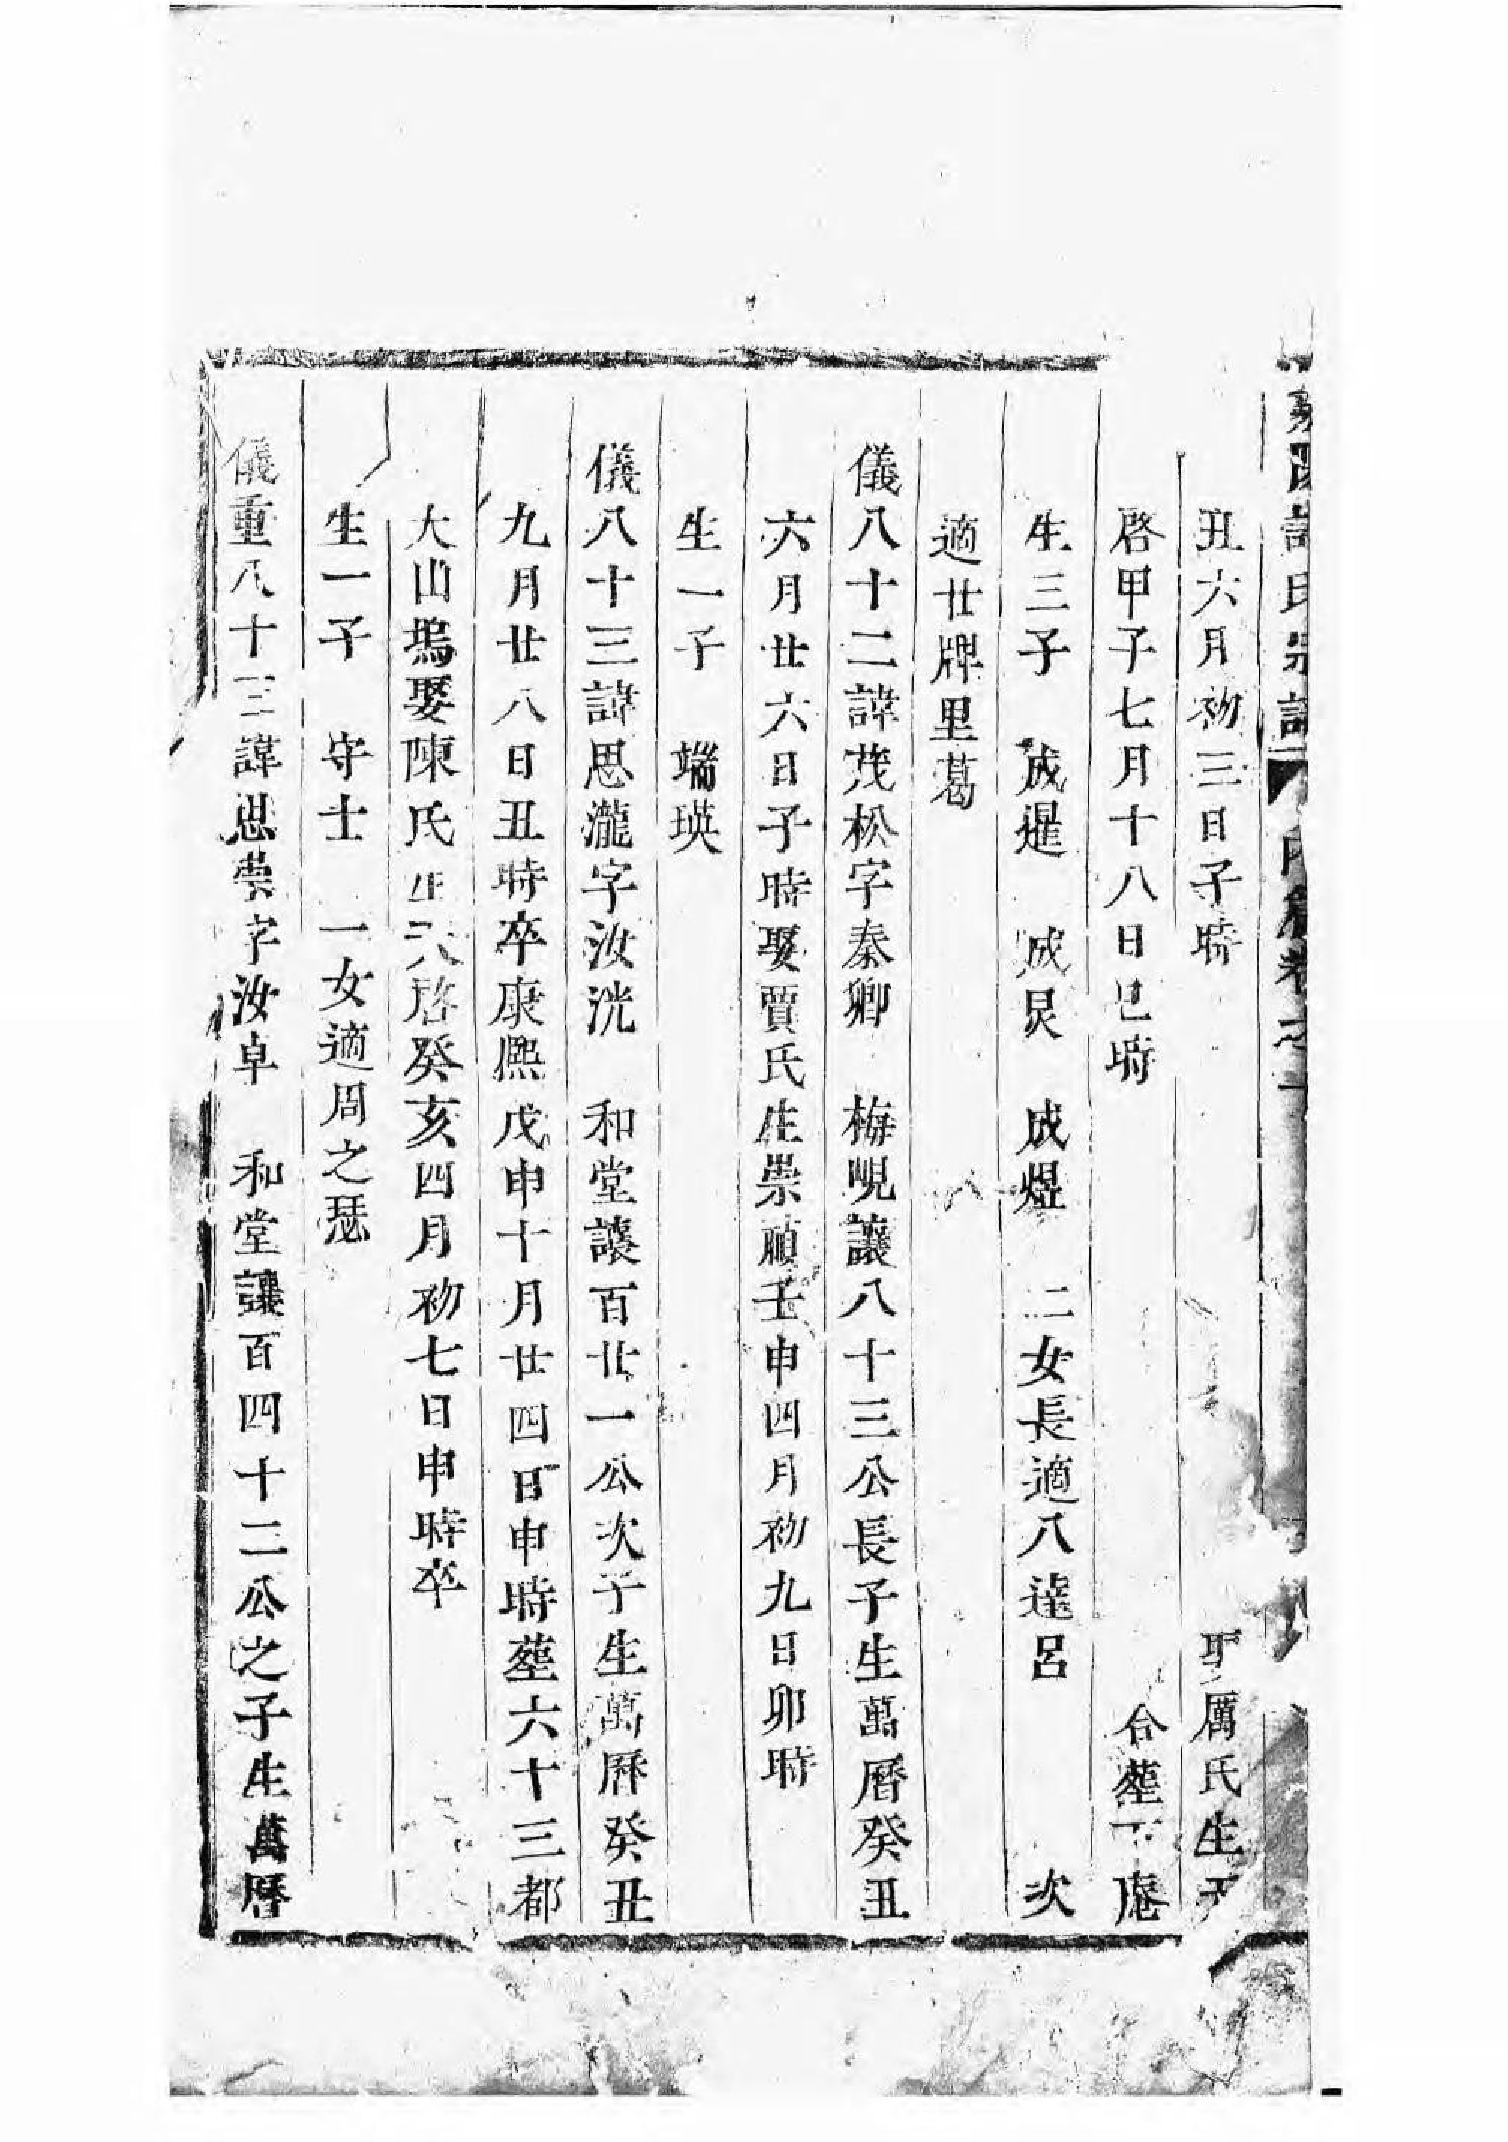 氏宗譜 內篇卷之十
丑六月初三日子時 娶厲氏生天
啓甲子七月十八日巳時 合塟下庵
生三子 成暹 成炅 成煜 二女長適八達呂 次
適廿牌里葛
儀八十二諱茂松字秦卿 梅峴讓八十三公長子生萬曆癸丑
六月廿六日子時娶賈氏生崇禎壬申四月初九日卯時
生一子 端瑛
儀八十三諱思瀧字汝洸 和堂讓百廿一公次子生萬曆癸丑
九月廿八日丑時卒康熙戊申十月廿四日申時塟六十三都
大山塢娶陳氏生天啓癸亥四月初七日申時卒
生一子 守士 一女適周之瑟
儀重八十三諱思崇字汝卓 和堂讓百四十二公之子生萬曆